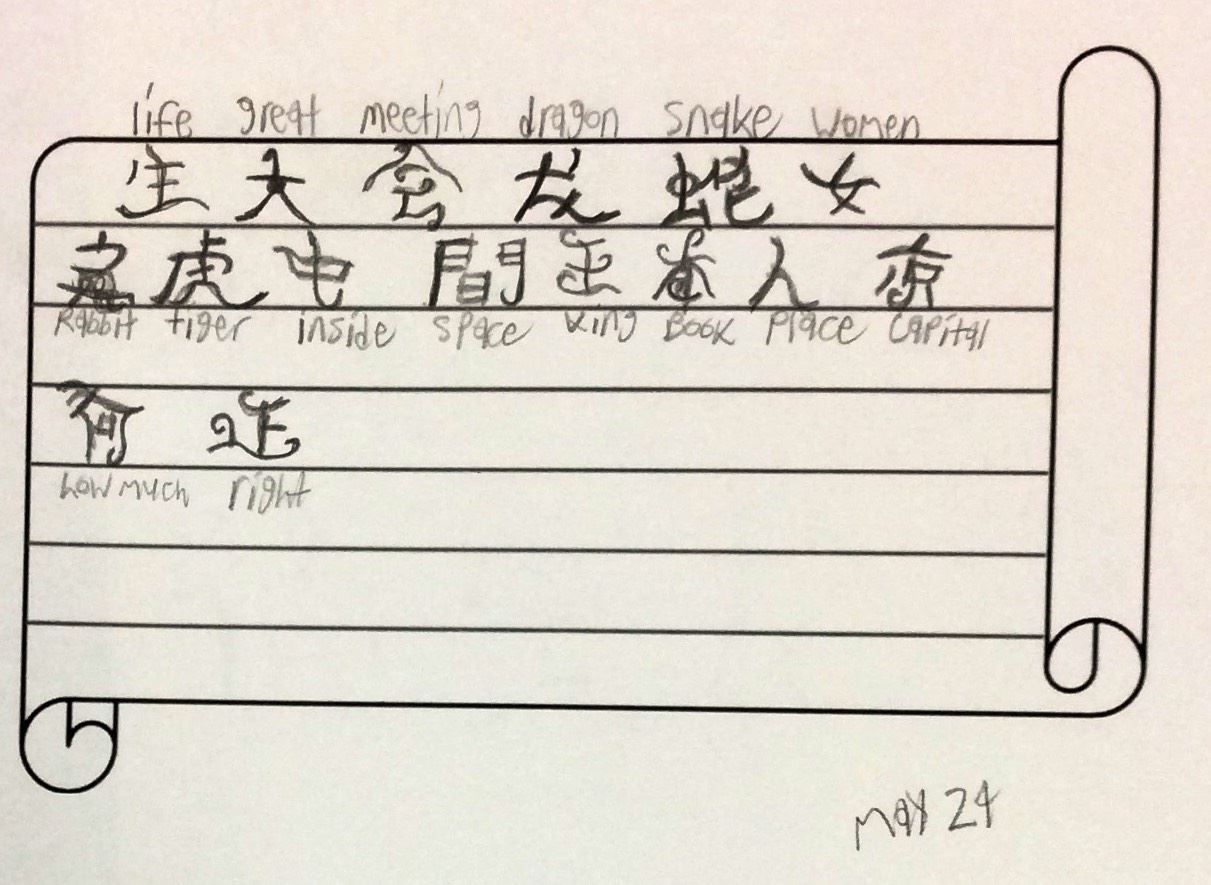 life great meeting dragon snake women
生 大 会 龙 蛇 女
虎 中 間 王 本 人 京
Rabbit tiger inside space king Book place capital
何 正
how much right
May 24